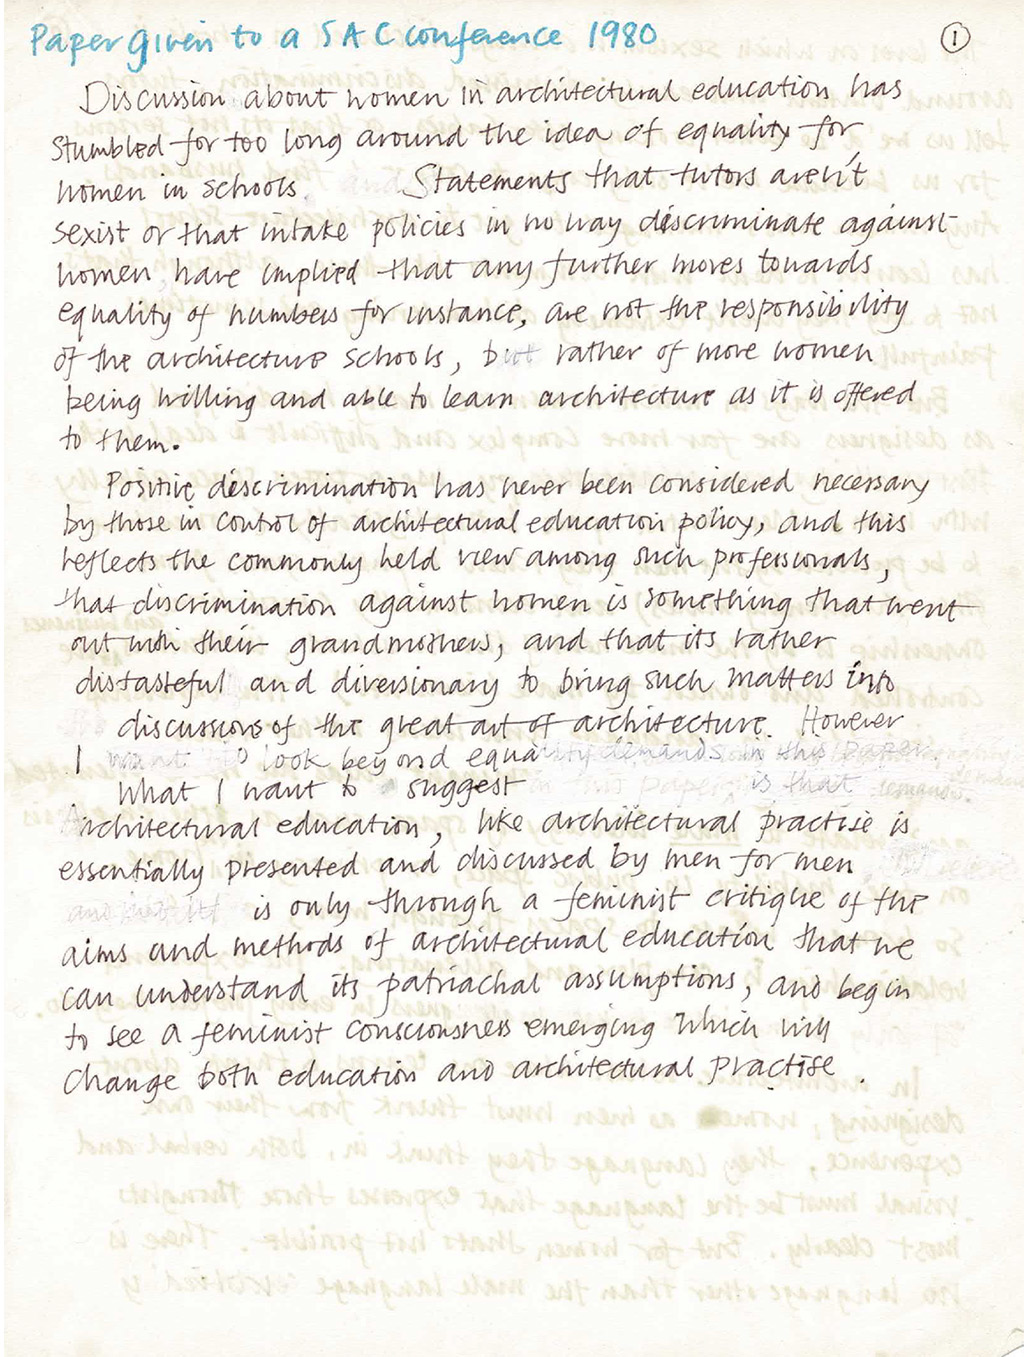 Paper given to a SAC conference 1980
1
Discussion about women in architectural education has
stumbled for too long around the idea of equality for
women in schools. Statements that tutors aren't
sexist or that intake policies in no way discriminate against
women, have implied that any further moves towards
equality of numbers for instance, are not the responsibility
of the architecture schools, but rather of more women
being willing and able to learn architecture as it is offered
to them.
Positive discrimination has never been considered necessary
by those in control of architectural education policy, and this
reflects the commonly held view among such professionals,
that discrimination against women is something that went
out with their grandmothers, and that its rather
distasteful and diversionary to bring such matters into
discussions of the great art of architecture. However
I want to look beyond equality demands in this paper.
What I want to suggest in this paper is that
Architectural education, like architectural practise is
essentially presented and discussed by men for men
is only through a feminist critique of the
aims and methods of architectural education that we
can understand its patriachal assumptions, and begin
to see a feminist consciousness emerging which will
change both education and architectural practise.